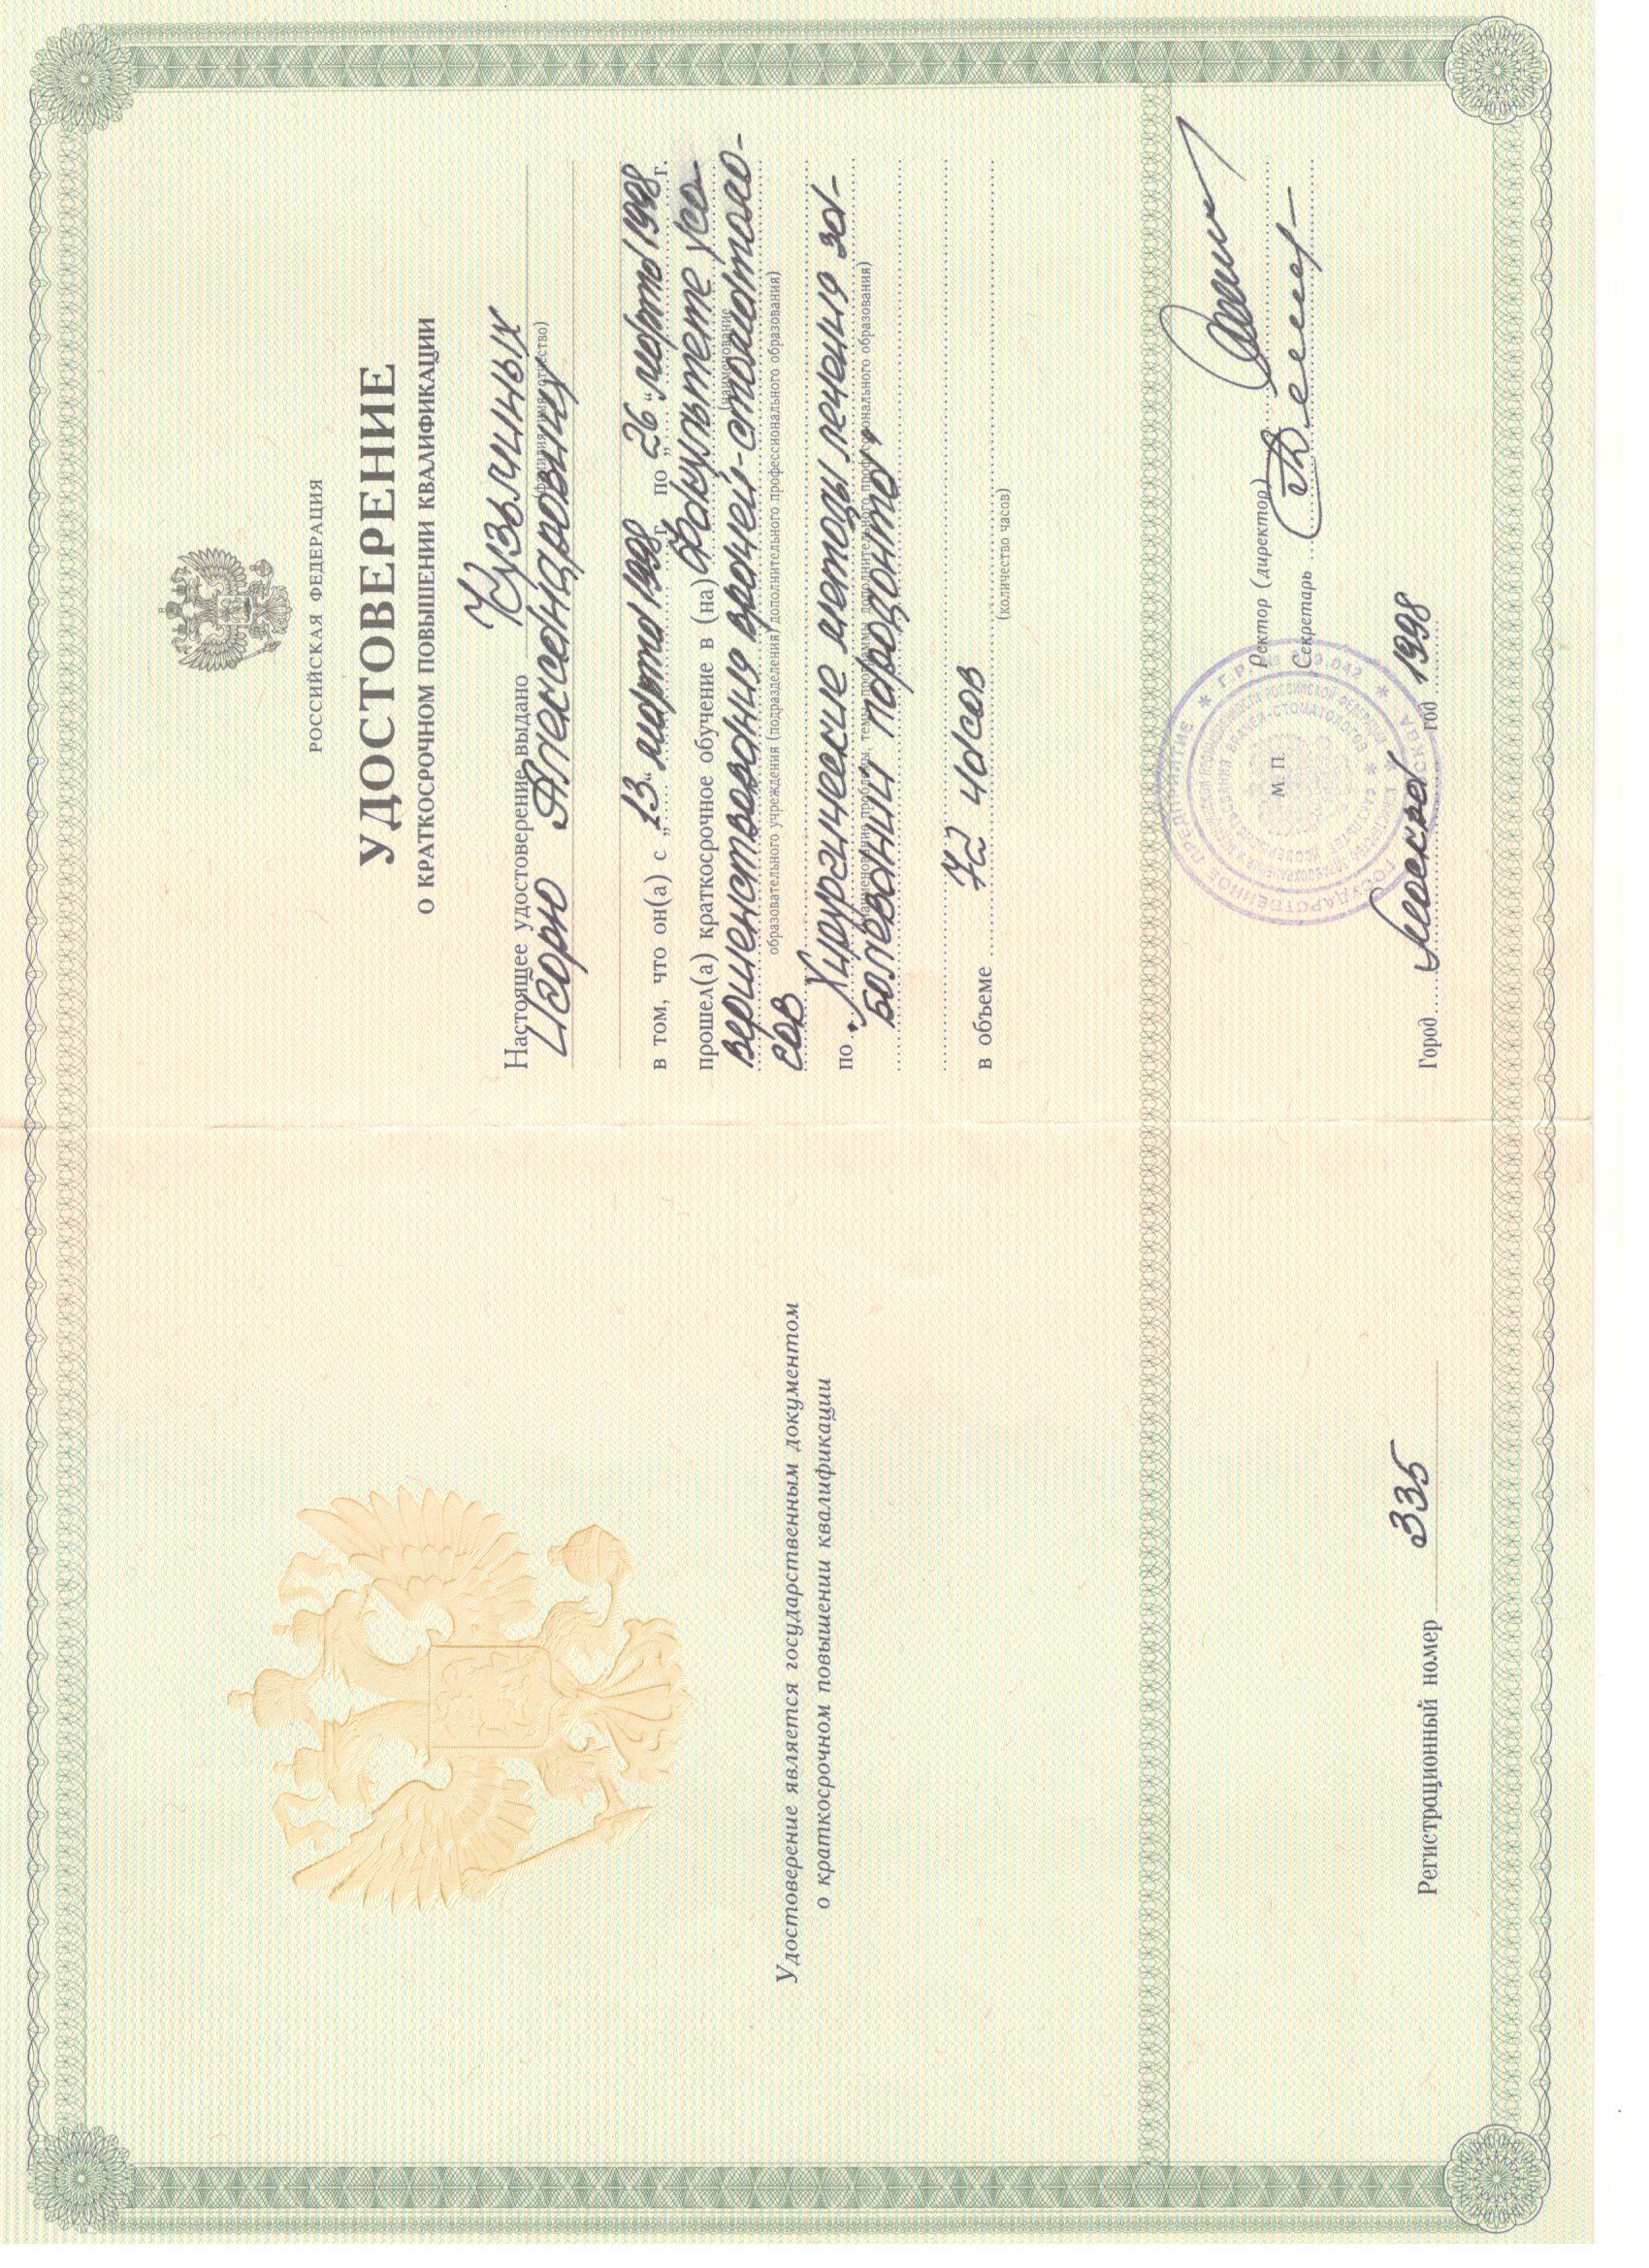 Удостоверение является государственным документом
о краткосрочном повышении квалификации
Регистрационный номер 335
РОССИЙСКАЯ ФЕДЕРАЦИЯ
УДОСТОВЕРЕНИЕ
О КРАТКОСРОЧНОМ ПОВЫШЕНИИ КВАЛИФИКАЦИИ
Настоящее удостоверение выдано Кузьминых
(фамилия, имя, отчество)
Игорю Александровичу
в том, что он(а) с „13“ марта 1998 г. по „26“ марта 1998 г.
прошел(а) краткосрочное обучение в (на) Факультете усо-
(наименование
вершенствования врачей-стоматоло-
образовательного учреждения (подразделения) дополнительного профессионального образования)
гов
по Хирургические методы лечения за-
(наименование проблемы, темы, программы дополнительного профессионального образования)
болеваний пародонта,
в объеме 72 часов
(количество часов)
Ректор (директор)
Секретарь
М. П.
ГОСУДАРСТВЕННОЕ ПРЕДПРИЯТИЕ * Г.Р. №
Город Москва год 1998